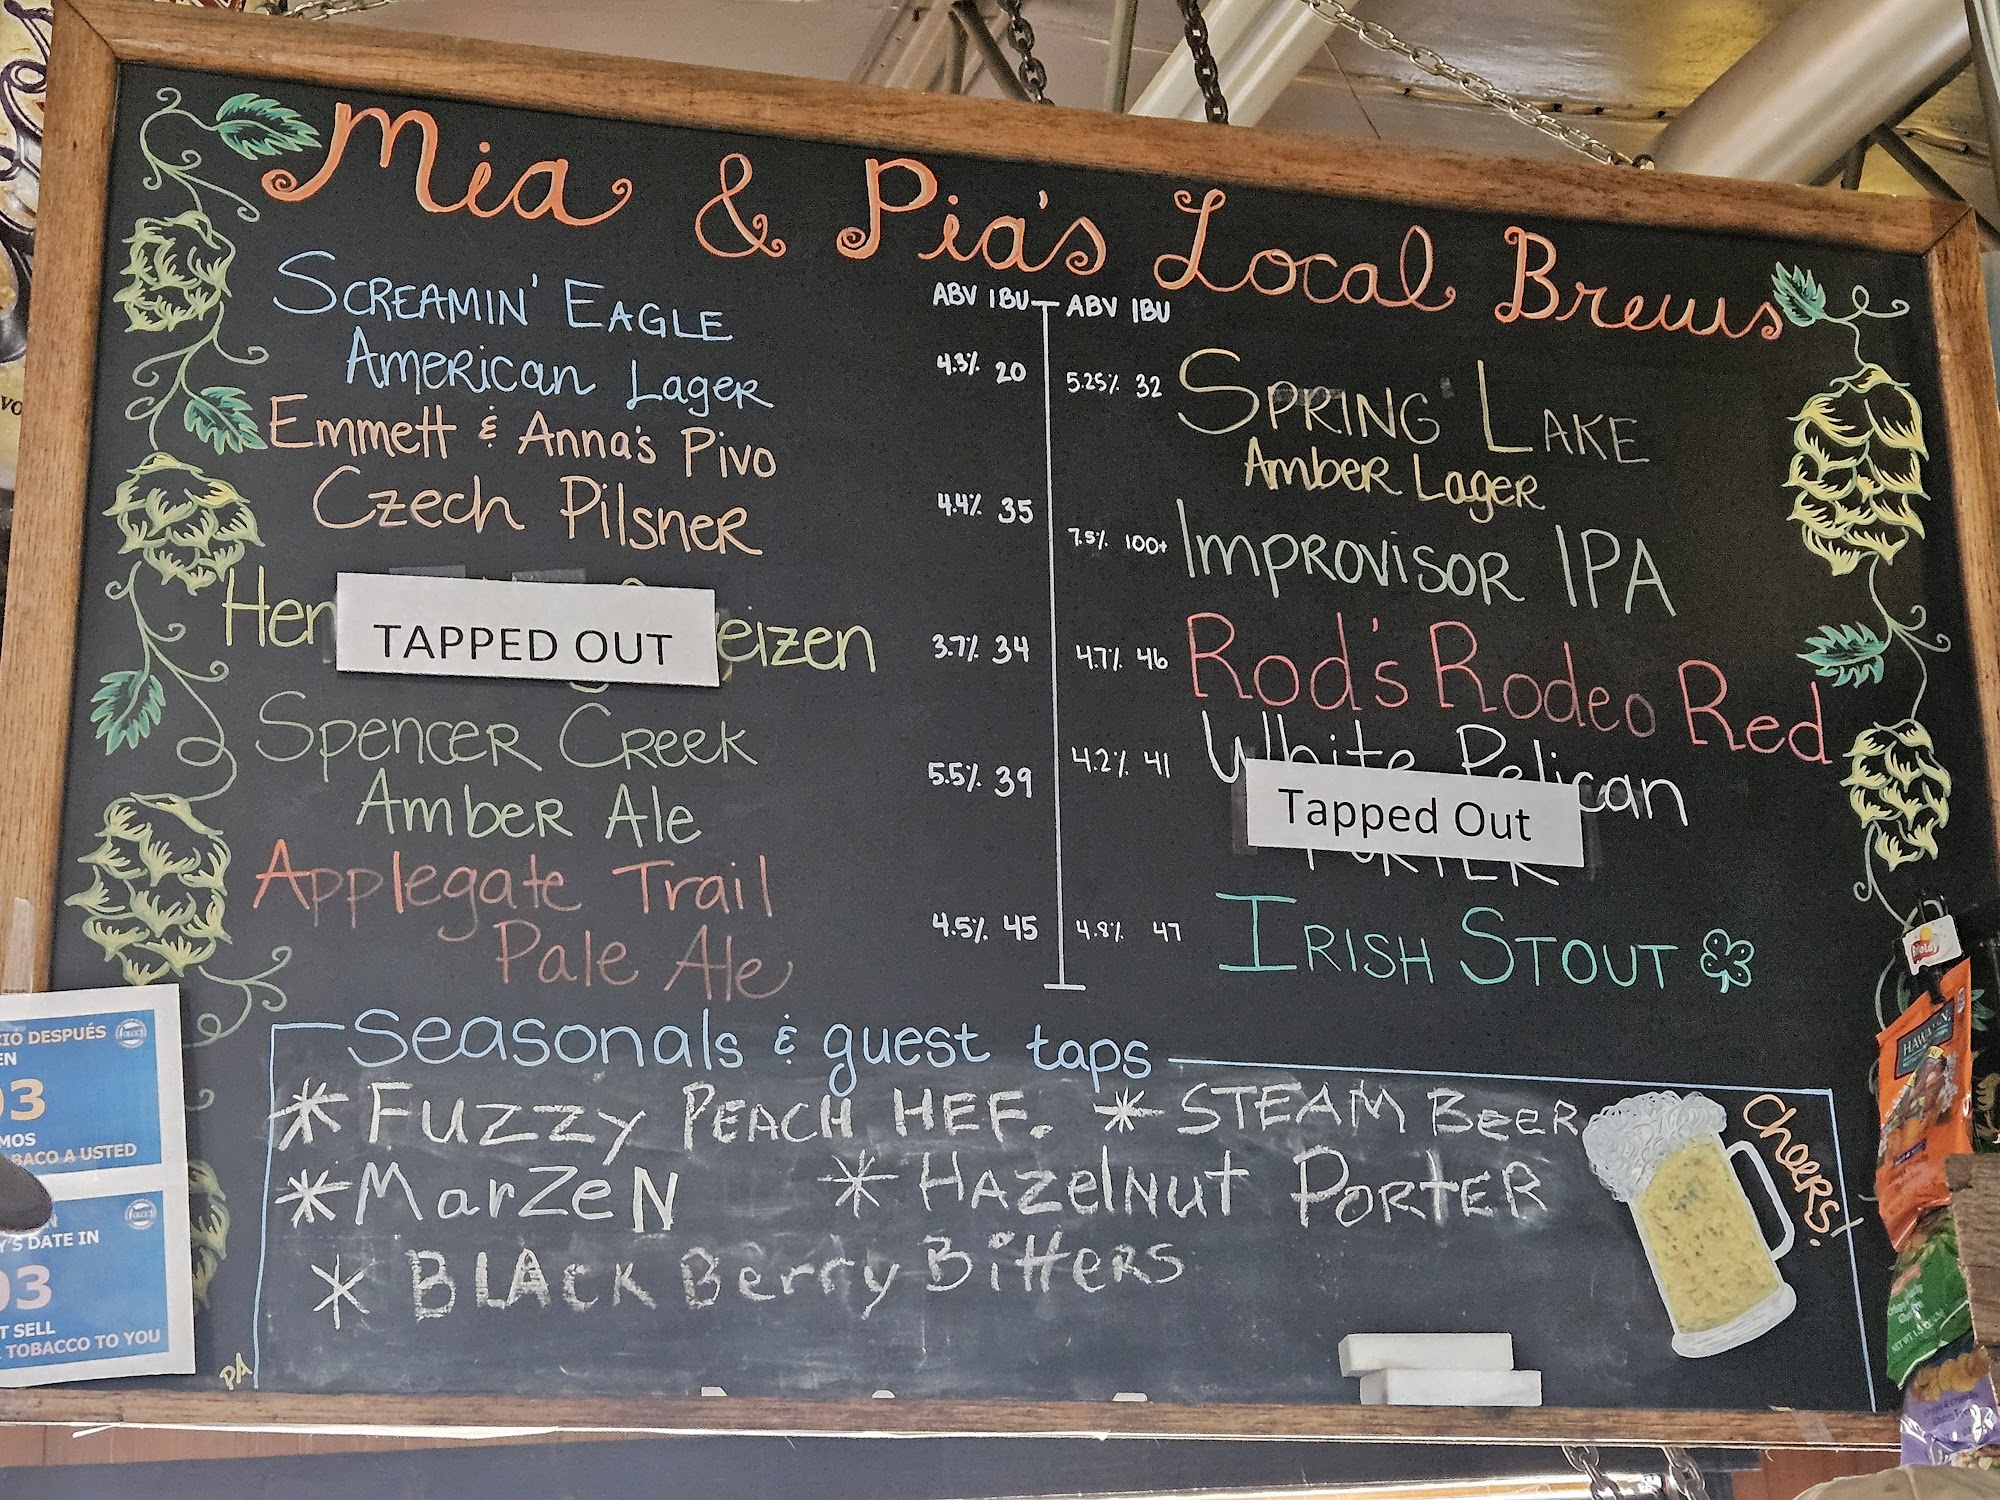 Mia & Pia's Local Brews
ABV IBU
SCREAMIN' EAGLE
AMERICAN LAGER
4.3% 20
Emmett & Anna's Pivo
Czech Pilsner
4.4% 35
TAPPED OUT
eizen
3.7% 34
Spencer Creek
Amber Ale
5.5% 39
Applegate Trail
Pale Ale
4.5% 45
ABV IBU
5.25% 32
SPRING LAKE
Amber Lager
7.5% 100+
IMPROVISOR IPA
4.7% 46
Rod's Rodeo Red
4.2% 41
White Pelican
Tapped Out
PORTER
4.8% 47
IRISH STOUT
Seasonals & guest taps
* FUZZY PEACH HEF. * STEAM BeeR
* MarZeN * HAZelNut PORtER
* BLACK Berry BitteRS
Cheers!
PA
DESPUÉS
EN
03
BACO A USTED
'S DATE IN
03
T SELL
TOBACCO TO YOU
HAWAIIAN